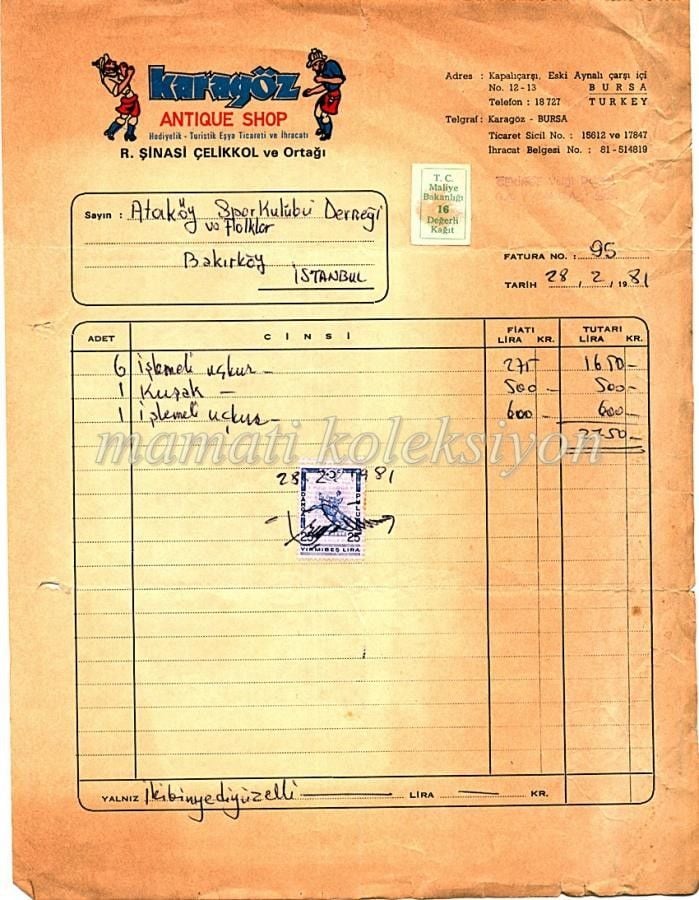 karagöz
ANTIQUE SHOP
Hediyelik - Turistik Eşya Ticareti ve İhracatı
R. ŞİNASİ ÇELİKKOL ve Ortağı
Adres : Kapalıçarşı, Eski Aynalı çarşı içi
No. 12 - 13 BURSA
Telefon : 18 727 TURKEY
Telgraf : Karagöz - BURSA
Ticaret Sicil No. : 15612 ve 17847
İhracat Belgesi No. : 81 - 514819
T. C.
Maliye
Bakanlığı
16
Değerli
Kağıt
Sayın : Ataköy Spor Kulübü Derneği
ve Folklor
Bakırköy
İSTANBUL
FATURA NO. : 95
TARİH 28 / 2 / 1981
ADET CİNSİ FİATI LİRA KR. TUTARI LİRA KR.
6 İşlemeli uçkur - 275 1650 -
1 Kuşak - 500 - 500 -
1 İşlemeli uçkur - 600 - 600 -
2750 -
mamati koleksiyon
28 2 1981
DAMGA PULU
25 25
YİRMİBEŞ LİRA
YALNIZ İkibinyediyüzelli LİRA KR.